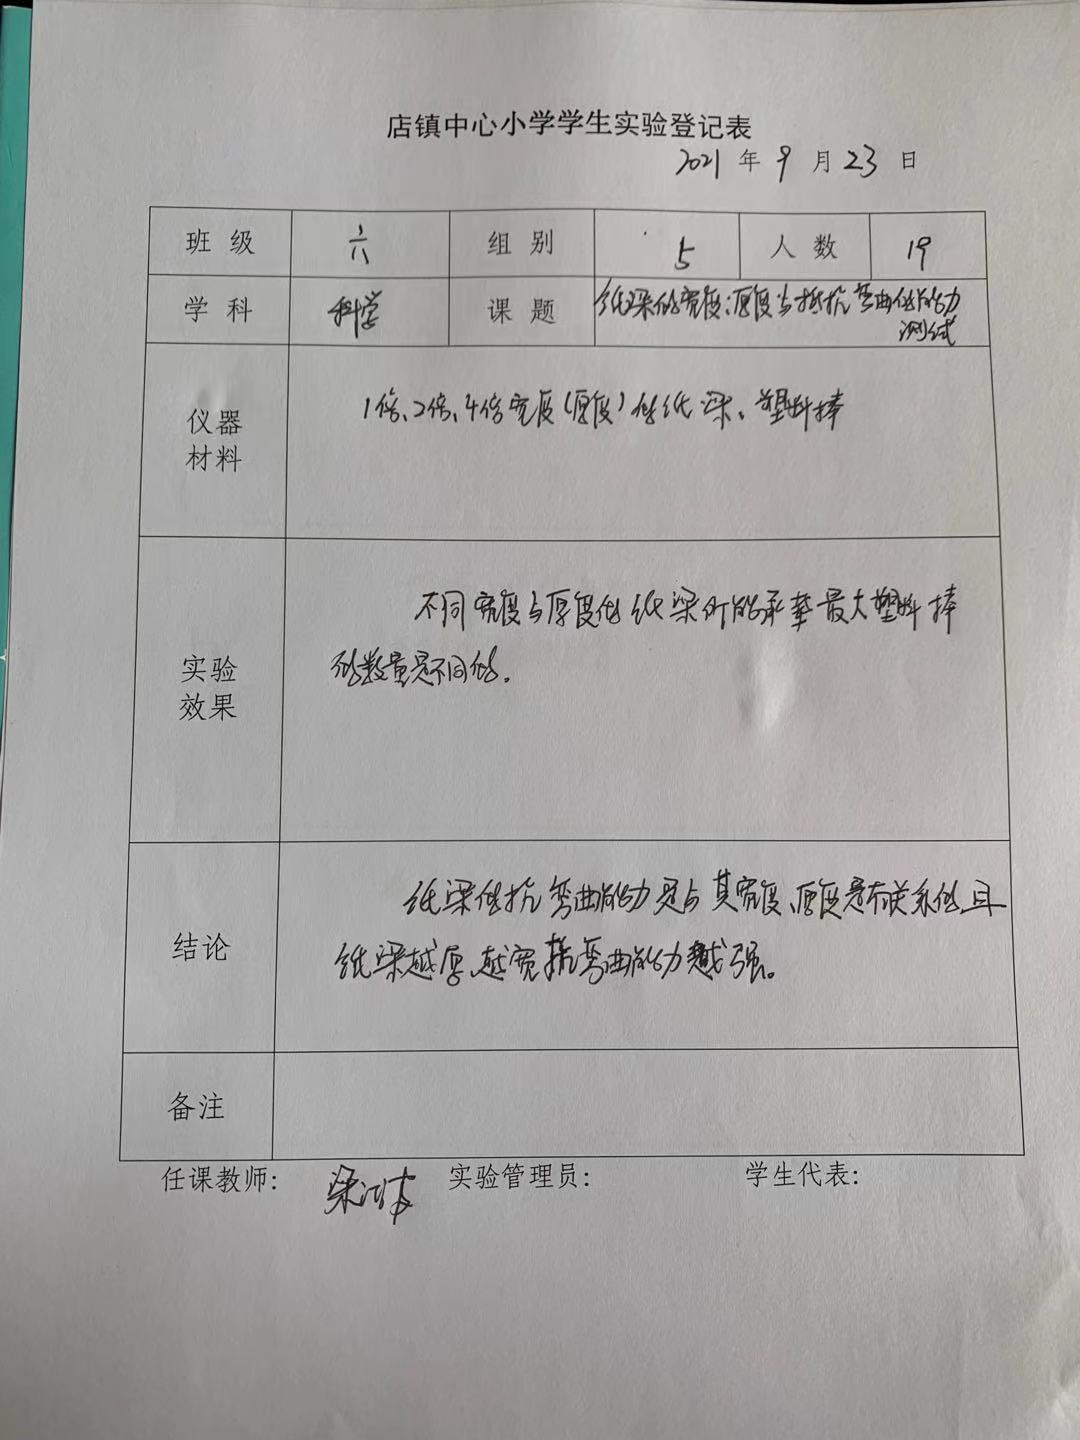 店镇中心小学学生实验登记表
2021 年 9 月 23 日
班级 六 组别 5 人数 19
学科 科学 课题 纸梁的宽度、厚度与抵抗弯曲的能力
测试
仪器
材料
1倍、2倍、4倍宽度(厚度)的纸梁、塑料棒
不同宽度与厚度的纸梁所能承荤最大塑料棒
的数量是不同的。
实验
效果
纸梁的抗弯曲能力是与其宽度、厚度是有关系的,且
纸梁越厚、越宽抗弯曲能力越强。
结论
备注
任课教师: 梁 实验管理员: 学生代表: